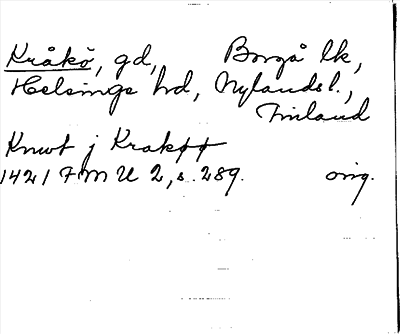 Kråkö, gd, Borgå lk,
Helsinge hd, Nylands l.,
Finland
Knwt j Krakøø
1421 FMU 2, s. 289. orig.